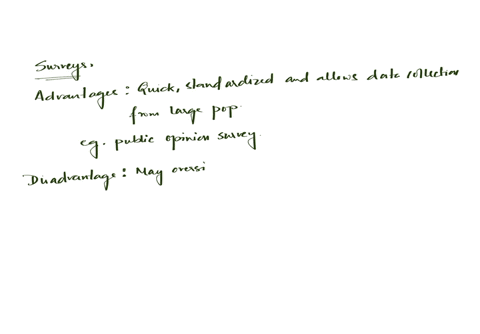 Surveys.
Advantages : Quick, standardized and allows data collection
from large pop.
eg. public opinion survey.
Disadvantage : May oversi